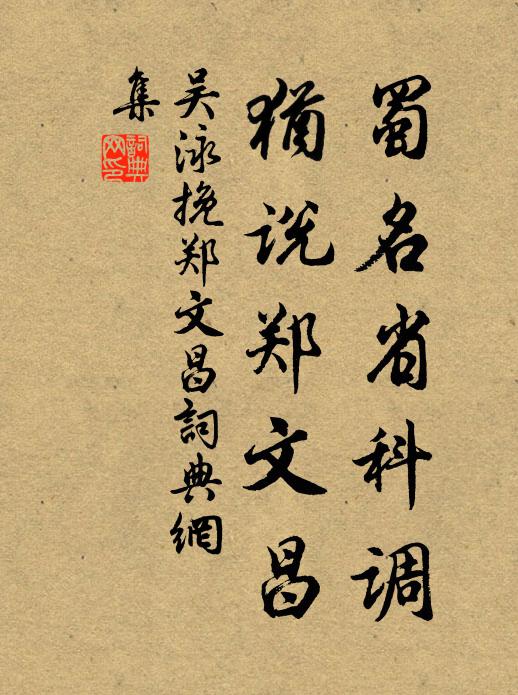 蜀名省科调
犹说郑文昌
吴泳挽郑文昌詞典網
集
詞典網印